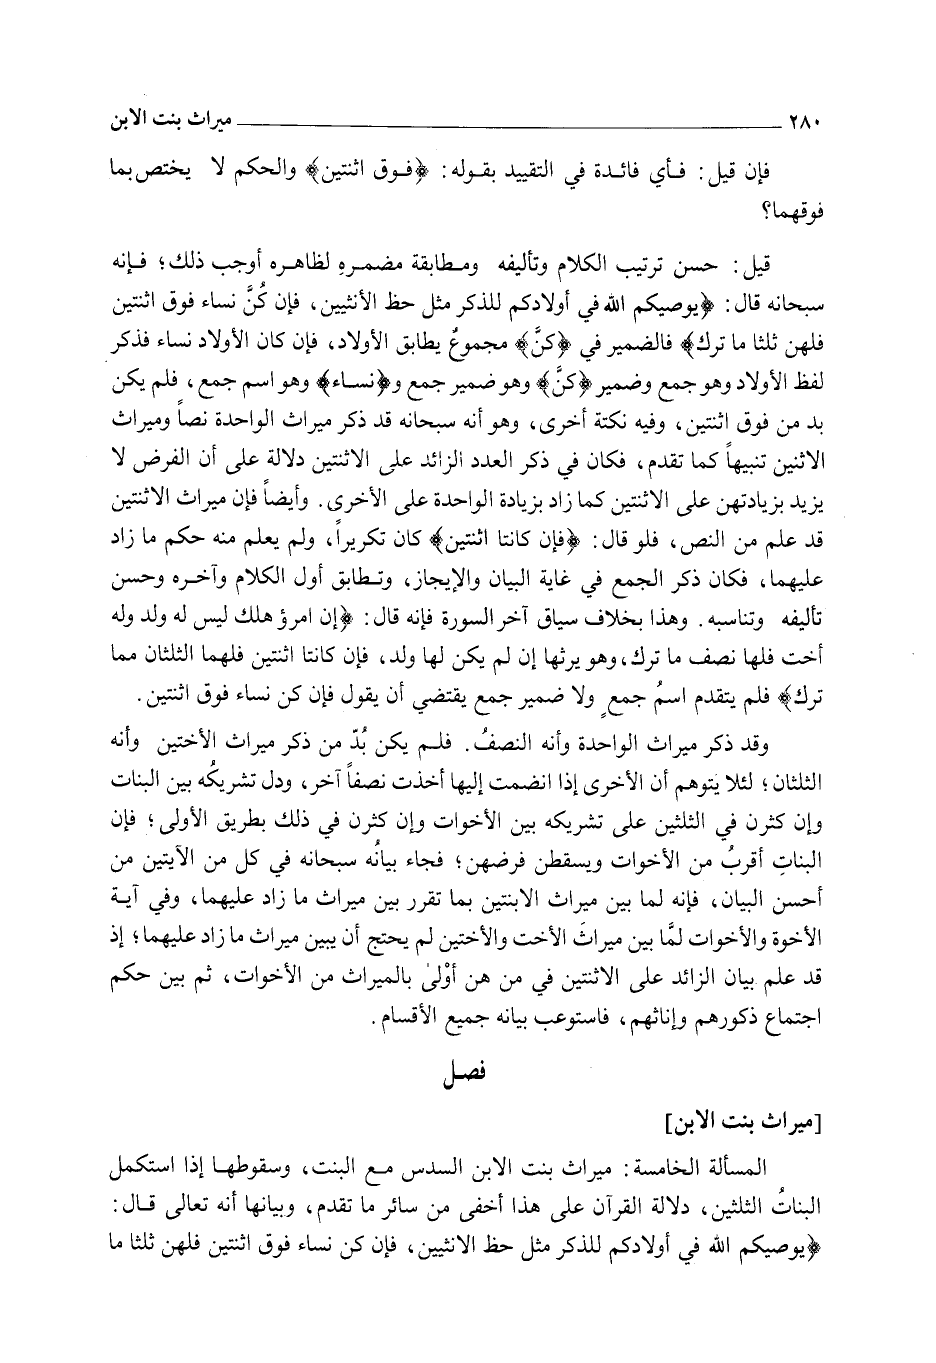 ٢٨٠ ميراث بنت الابن
فإن قيل: فـأي فائـدة في التقييد بقـوله: ﴿فـوق اثنتين﴾ والحكم لا يختص بما
فوقهما؟
قيل: حسن ترتيب الكلام وتأليفه ومـطابقة مضمـرهِ لظاهـره أوجب ذلك؛ فـإنه
سبحانه قال: ﴿يوصيكم الله في أولادكم للذكر مثل حظ الأنثيين، فإن كُنَّ نساء فوق اثنتين
فلهن ثلثا ما ترك﴾ فالضمير في ﴿كنَّ﴾ مجموعٌ يطابق الأولاد، فإن كان الأولاد نساء فذكر
لفظ الأولاد وهو جمع وضمير ﴿كنَّ﴾ وهو ضمير جمع و﴿نساء﴾ وهو اسم جمع، فلم يكن
بد من فوق اثنتين، وفيه نكتة أخرى، وهو أنه سبحانه قد ذكر ميراث الواحدة نصاً وميراث
الاثنين تنبيهاً كما تقدم، فكان في ذكر العدد الزائد على الاثنتين دلالة على أن الفرض لا
يزيد بزيادتهن على الاثنتين كما زاد بزيادة الواحدة على الأخرى. وأيضاً فإن ميراث الاثنتين
قد علم من النص، فلو قال: ﴿فإن كانتا اثنتين﴾ كان تكريراً، ولم يعلم منه حكم ما زاد
عليهما، فكان ذكر الجمع في غاية البيان والإيجاز، وتـطابق أول الكلام وآخـره وحسن
تأليفه وتناسبه. وهذا بخلاف سياق آخر السورة فإنه قال: ﴿إن امرؤ هلك ليس له ولد وله
أخت فلها نصف ما ترك، وهو يرثها إن لم يكن لها ولد، فإن كانتا اثنتين فلهما الثلثان مما
ترك﴾ فلم يتقدم اسمُ جمعٍ ولا ضمير جمع يقتضي أن يقول فإن كن نساء فوق اثنتين.
وقد ذكر ميراث الواحدة وأنه النصفُ. فلـم يكن بُدّ من ذكر ميراث الأختين وأنه
الثلثان؛ لئلا يَتوهم أن الأخرى إذا انضمت إليها أخذت نصفاً آخر، ودل تشريكُه بين البنات
وإن كثرن في الثلثين على تشريكه بين الأخوات وإن كثرن في ذلك بطريق الأولى؛ فإن
البناتِ أقربُ من الأخوات ويسقطن فرضهن؛ فجاء بيانُه سبحانه في كل من الآيتين من
أحسن البيان، فإنه لما بين ميراث الابنتين بما تقرر بين ميراث ما زاد عليهما، وفي آيـة
الأخوة والأخوات لمَّا بين ميراثَ الأخت والأختين لم يحتج أن يبين ميراث ما زاد عليهما؛ إذ
قد علم بيان الزائد على الاثنتين في من هن أوْلىٰ بالميراث من الأخوات، ثم بين حكم
اجتماع ذكورهم وإناثهم، فاستوعب بيانه جميع الأقسام.
فصـل
[ميراث بنت الابن]
المسألة الخامسة: ميراث بنت الابن السدس مـع البنت، وسقوطهـا إذا استكمل
البناتُ الثلثين، دلالة القرآن على هذا أخفى من سائر ما تقدم، وبيانها أنه تعالى قـال:
﴿يوصيكم الله في أولادكم للذكر مثل حظ الانثيين، فإن كن نساء فوق اثنتين فلهن ثلثا ما